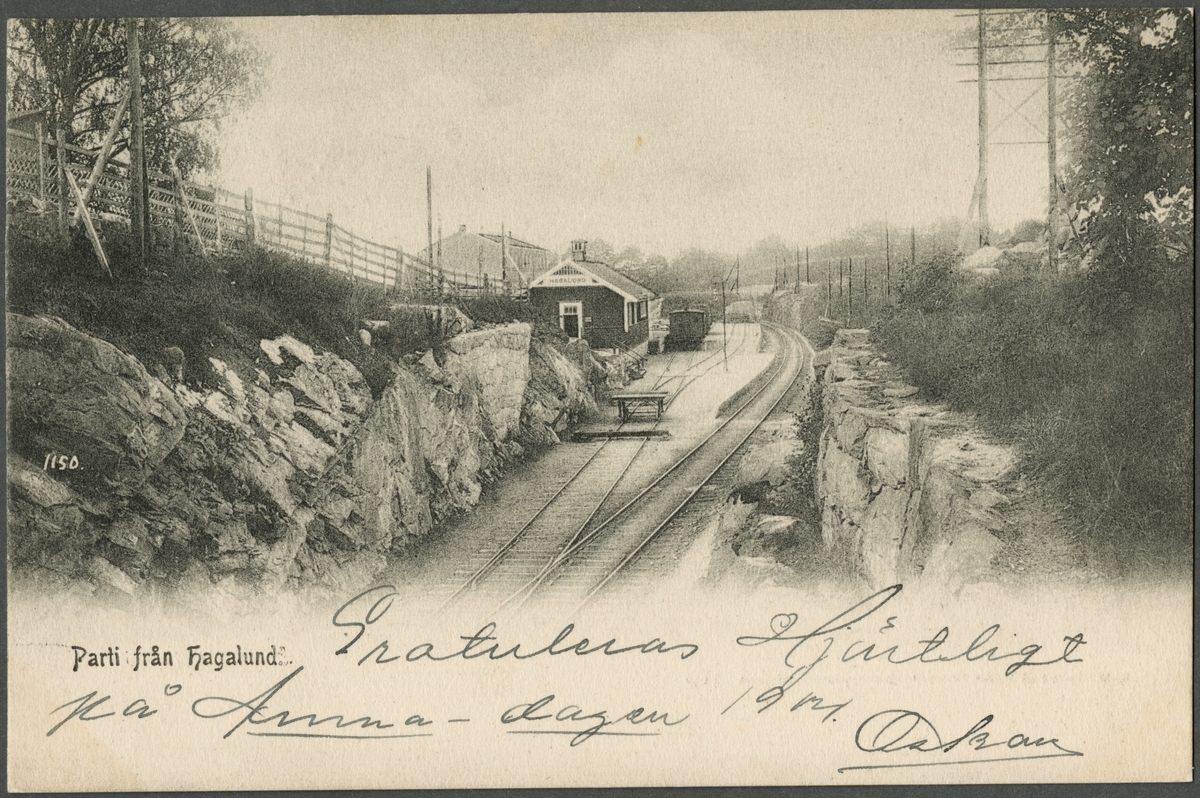 HAGALUND
1150.
Parti från Hagalund.
Gratuleras Hjärtligt
på Anna-dagen 1904.
Oskar